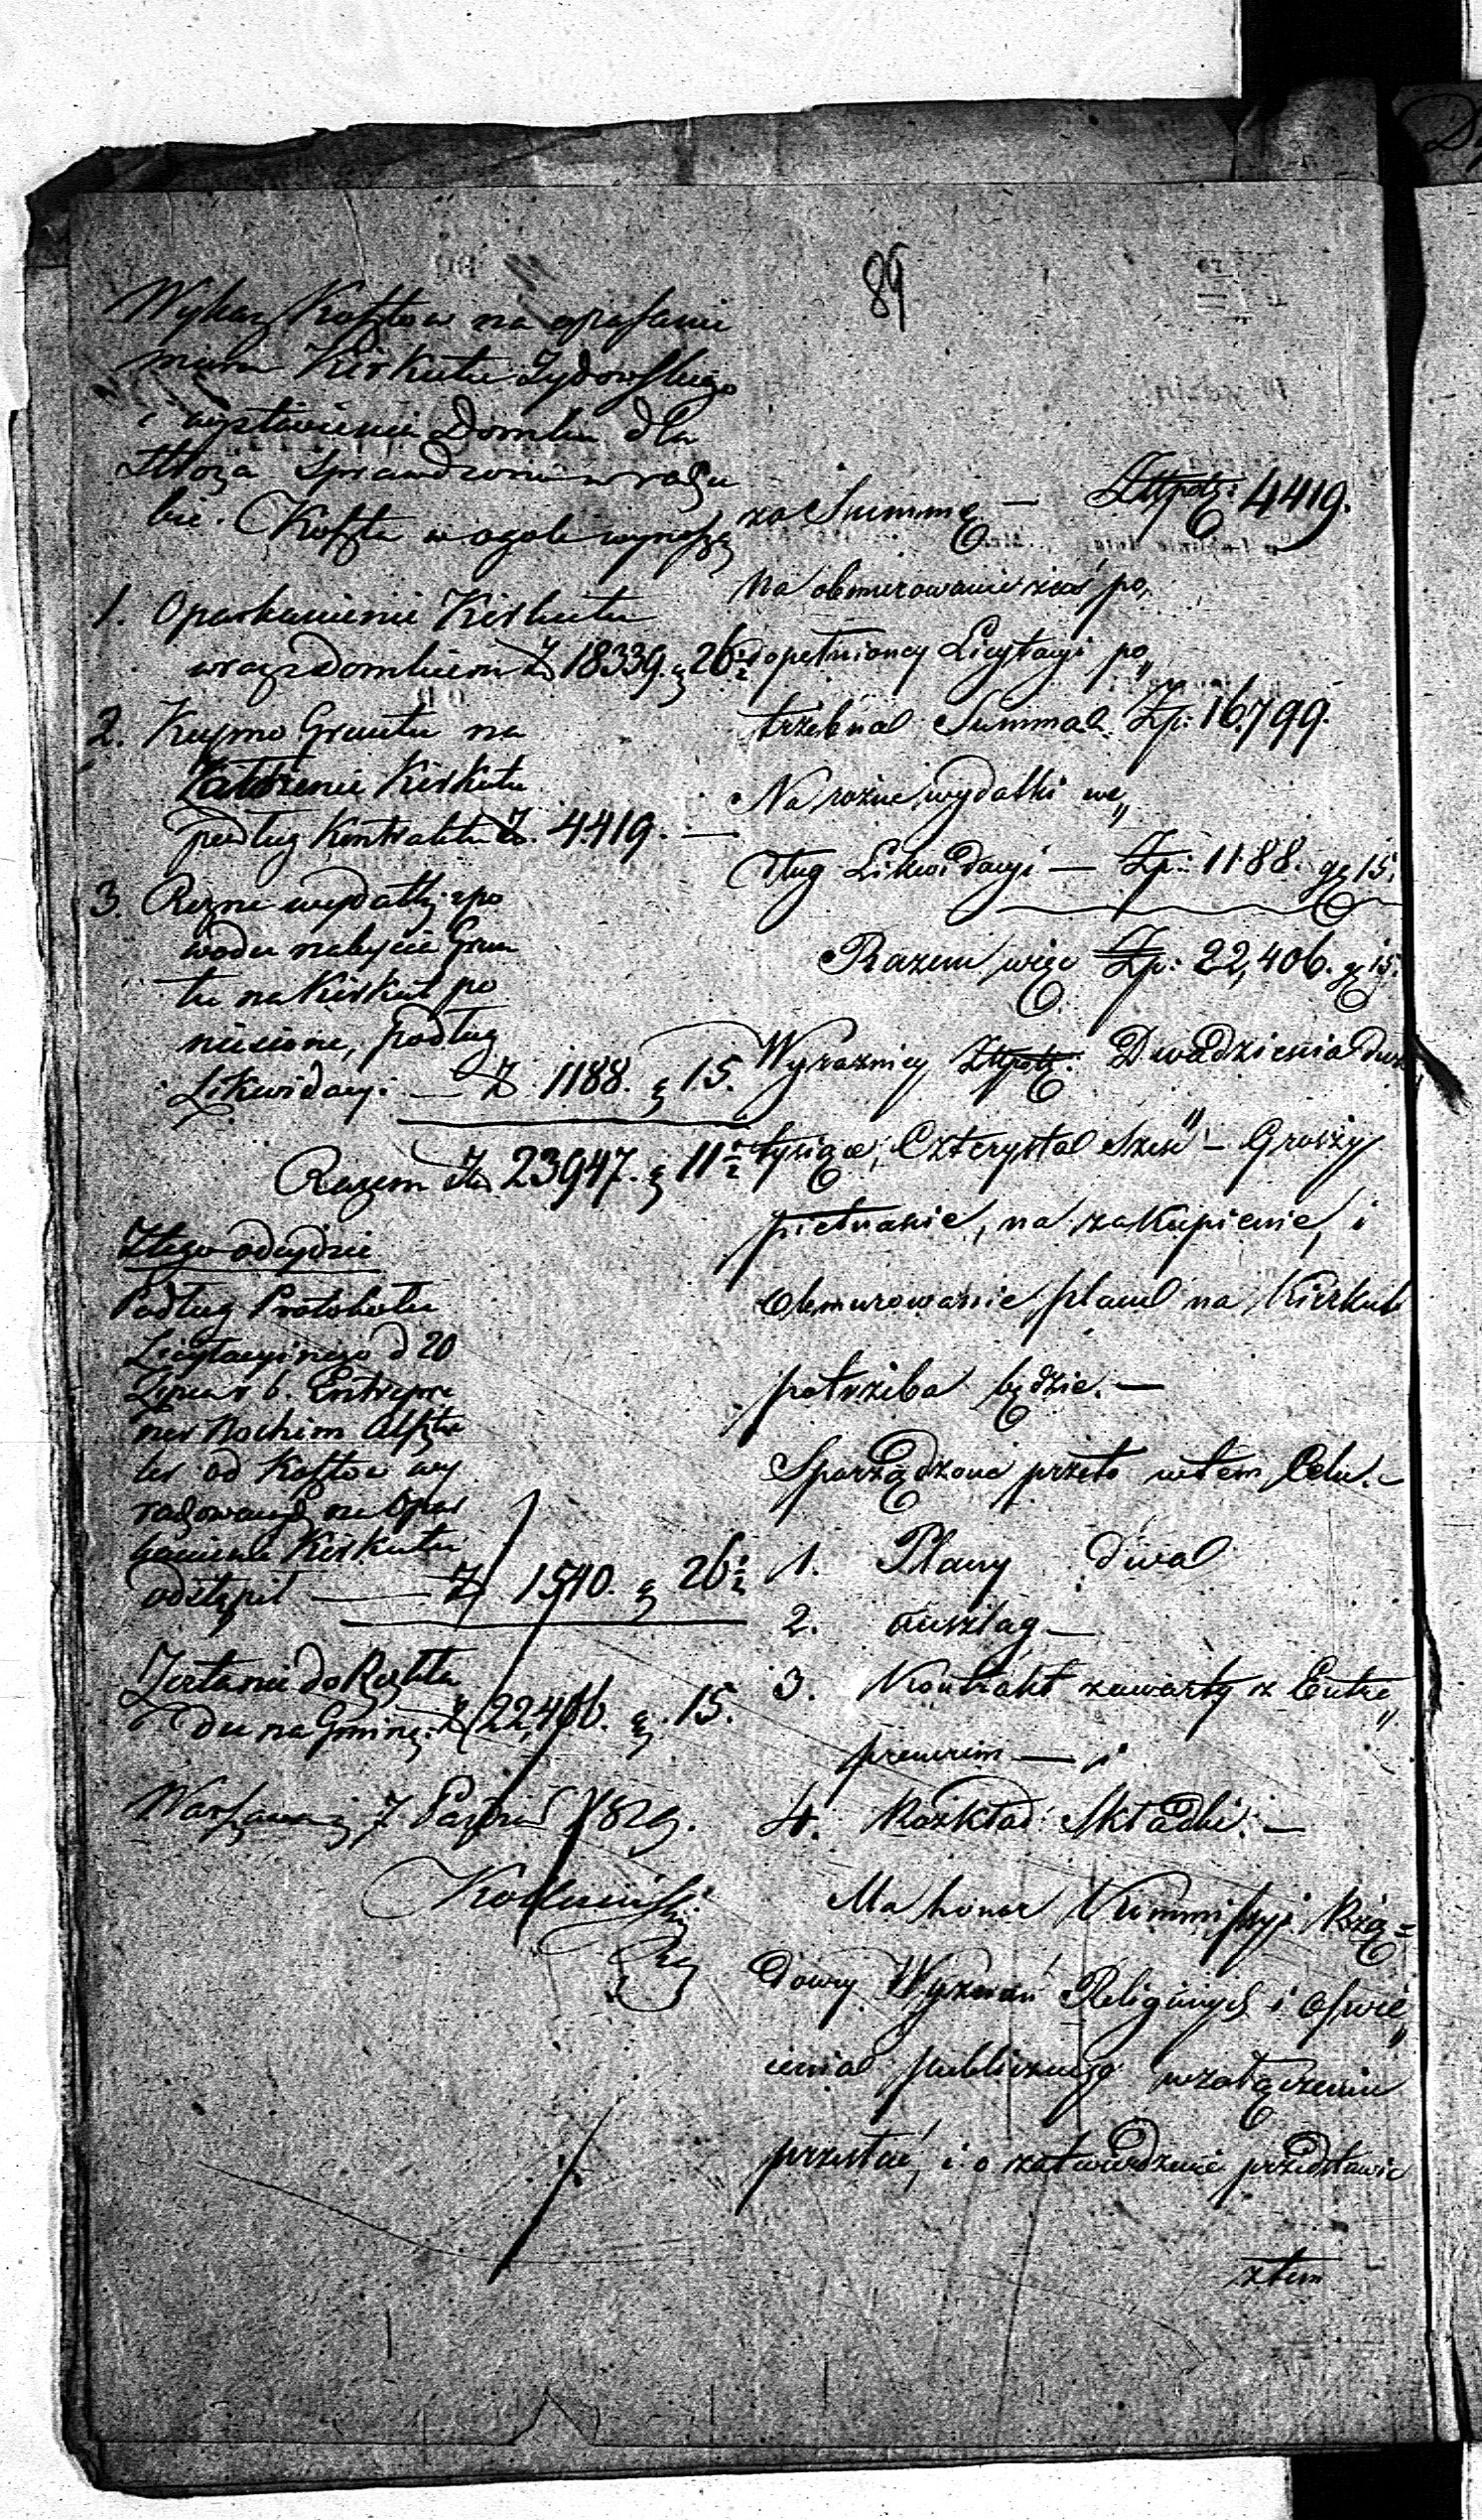 89
Wykaz Kosztow na opasanie
murem Kirkutu Żydowskiego
i wystawienie Domku dla
Stroża sprawdzone w raszu
bie. Koszta w ogole wynoszą
1. Oparkanienie Kirkutu
wraz z domkiem Zł 18339. g 26½
2. Kupno Gruntu na
Założenie Kirkutu
podług Kontraktu Zł. 4419. —
3. Rożne wydatki z po
wodu nabycia Grun
tu na Kirkut po
niesione, podług
Likwidacyi — Zł 1188. g 15.
Razem Zł 23947. g 11½
Z tego odeydzie
Podług Protokołu
Licytacyinego d 20
Lipca r b. Entrepre
ner
od Kosztow wy
rachowanych na Opar
kanienie Kirkutu
odstąpił — Zł 1540. g 26½
Zostanie do Rozkła
du na Gminę Zł 22,406. g. 15.
Warszawa 7 Paździer 1829.
za Summę — Złtpolz: 4419.
Na obmurowanie zaś po
dopełnioney Licytacyi po„
trzebna Summa Zp: 16,799.
Na rożne wydatki we„
dług Likwidacyi — Zp: 1188. gr 15.
Razem więc Zp: 22,406. gr 15.
Wyrazniey Złtpolz: Dwadzieścia dwa
tysiące, Czterysta Sześć — Groszy
pietnaście, na zakupienie, i
Obmurowanie placu na Kirkut
potrzeba będzie. —
Sporządzone przeto w tem Celu. —
1. Plany dwa
2. Anszlag —
3. Kontrakt zawarty z Entre„
prenerem — i
4. Rozkład Składki. —
Ma honor Kommissyi Rzą=
dowey Wyznań Religinych i Oświe„
cenia publicznego w załączeniu
przesłać, i o zatwierdzenie przedstawić
z tem